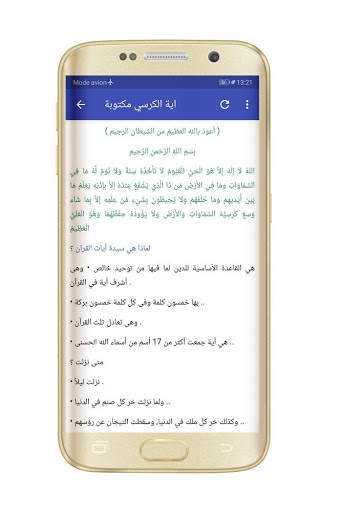 Mode avion 13:21
اية الكرسي مكتوبة
( أعوذ بالله العظيم من الشيطان الرجيم )
بِسمِ اللهِ الرَّحمنِ الرَّحِيم
اللهُ لا إِلَهَ إِلاَّ هُوَ الْحَيُّ الْقَيُّومُ لا تَأْخُذُهُ سِنَةٌ وَلا نَوْمٌ لَّهُ مَا فِي
السَّمَاوَاتِ وَمَا فِي الأَرْضِ مَن ذَا الَّذِي يَشْفَعُ عِنْدَهُ إِلاَّ بِإِذْنِهِ يَعْلَمُ مَا
بَيْنَ أَيْدِيهِمْ وَمَا خَلْفَهُمْ وَلاَ يُحِيطُونَ بِشَيْءٍ مِّنْ عِلْمِهِ إِلاَّ بِمَا شَاء
وَسِعَ كُرْسِيُّهُ السَّمَاوَاتِ وَالأَرْضَ وَلاَ يَؤُودُهُ حِفْظُهُمَا وَهُوَ الْعَلِيُّ
الْعَظِيمُ
لماذا هي سيدة آيات القرآن ؟
هي القاعدة الأساسية للدين لما فيها من توحيد خالص • وهى
أشرف آية في القرآن .
• بها خمسون كلمة وفى كل كلمة خمسون بركة ..
• وهى تعادل ثلث القرآن .
• هي آية جمعت أكثر من 17 أسم من أسماء الله الحسنى ..
متى نزلت ؟
• نزلت ليلاً .
• ولما نزلت خر كل صنم في الدنيا ..
• وكذلك خر كل ملك في الدنيا, وسقطت التيجان عن رؤسهم ..